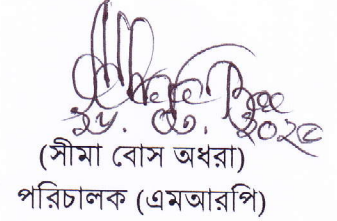 ২০২৫
(সীমা বোস অধরা)
পরিচালক (এমআরপি)